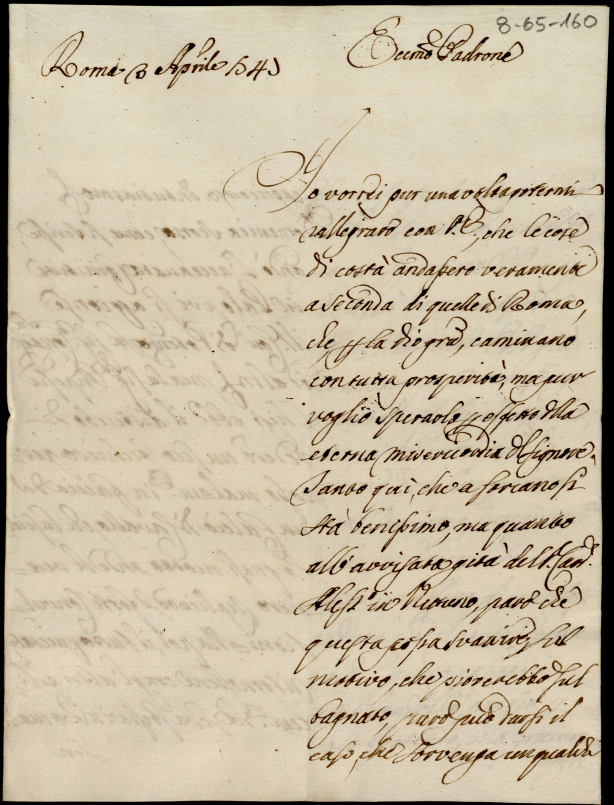 8-65-160
Roma 3 Aprile 1743
Eccmo Padrone
Io vorrei pur una volta potermi
rallegrare con V.E., che le cose
di costà andassero veramente
a seconda di quelle di Roma,
che la Dio gra, caminano
con tutta prosperità, ma pur
voglio sperarlo effetto della
eterna misericordia del Signore.
Tanto qui, che a
stà benissimo, ma quanto
all'avvisata gità del Sr. Card.
Aless.o in Nettuno, pare che
questa possa svanire sul
motivo, che pioverebbe sul
bagnato, pure può darsi il
caso, che sovvenga un qualche